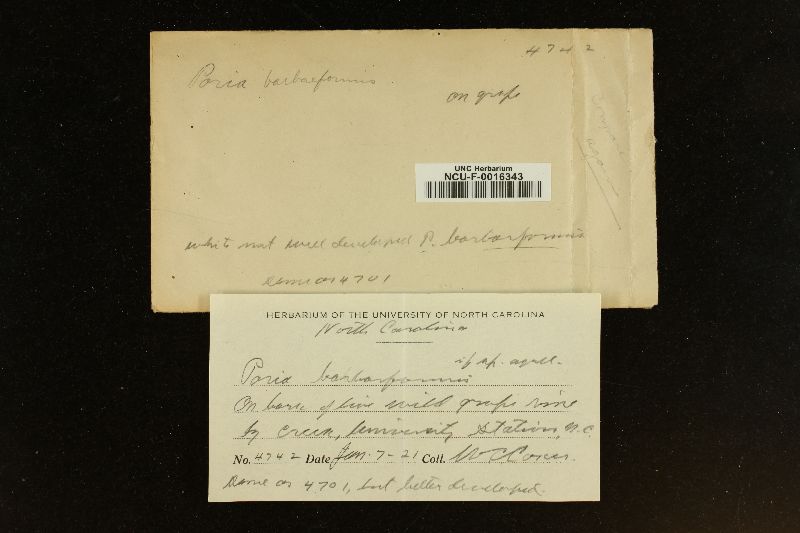 4742
Poria barbaeformis
on grape
compare
again
UNC Herbarium
NCU-F-0016343
white not well developed P. barbaeformis
same as 4701
HERBARIUM OF THE UNIVERSITY OF NORTH CAROLINA
North Carolina
if sp.
Poria barbaeformis
On bark of live wild grape vine
by creek, University Station, N.C.
No. 4742 Date Jan. 7-21 Coll. W C Coker.
Same as 4701, but better developed.